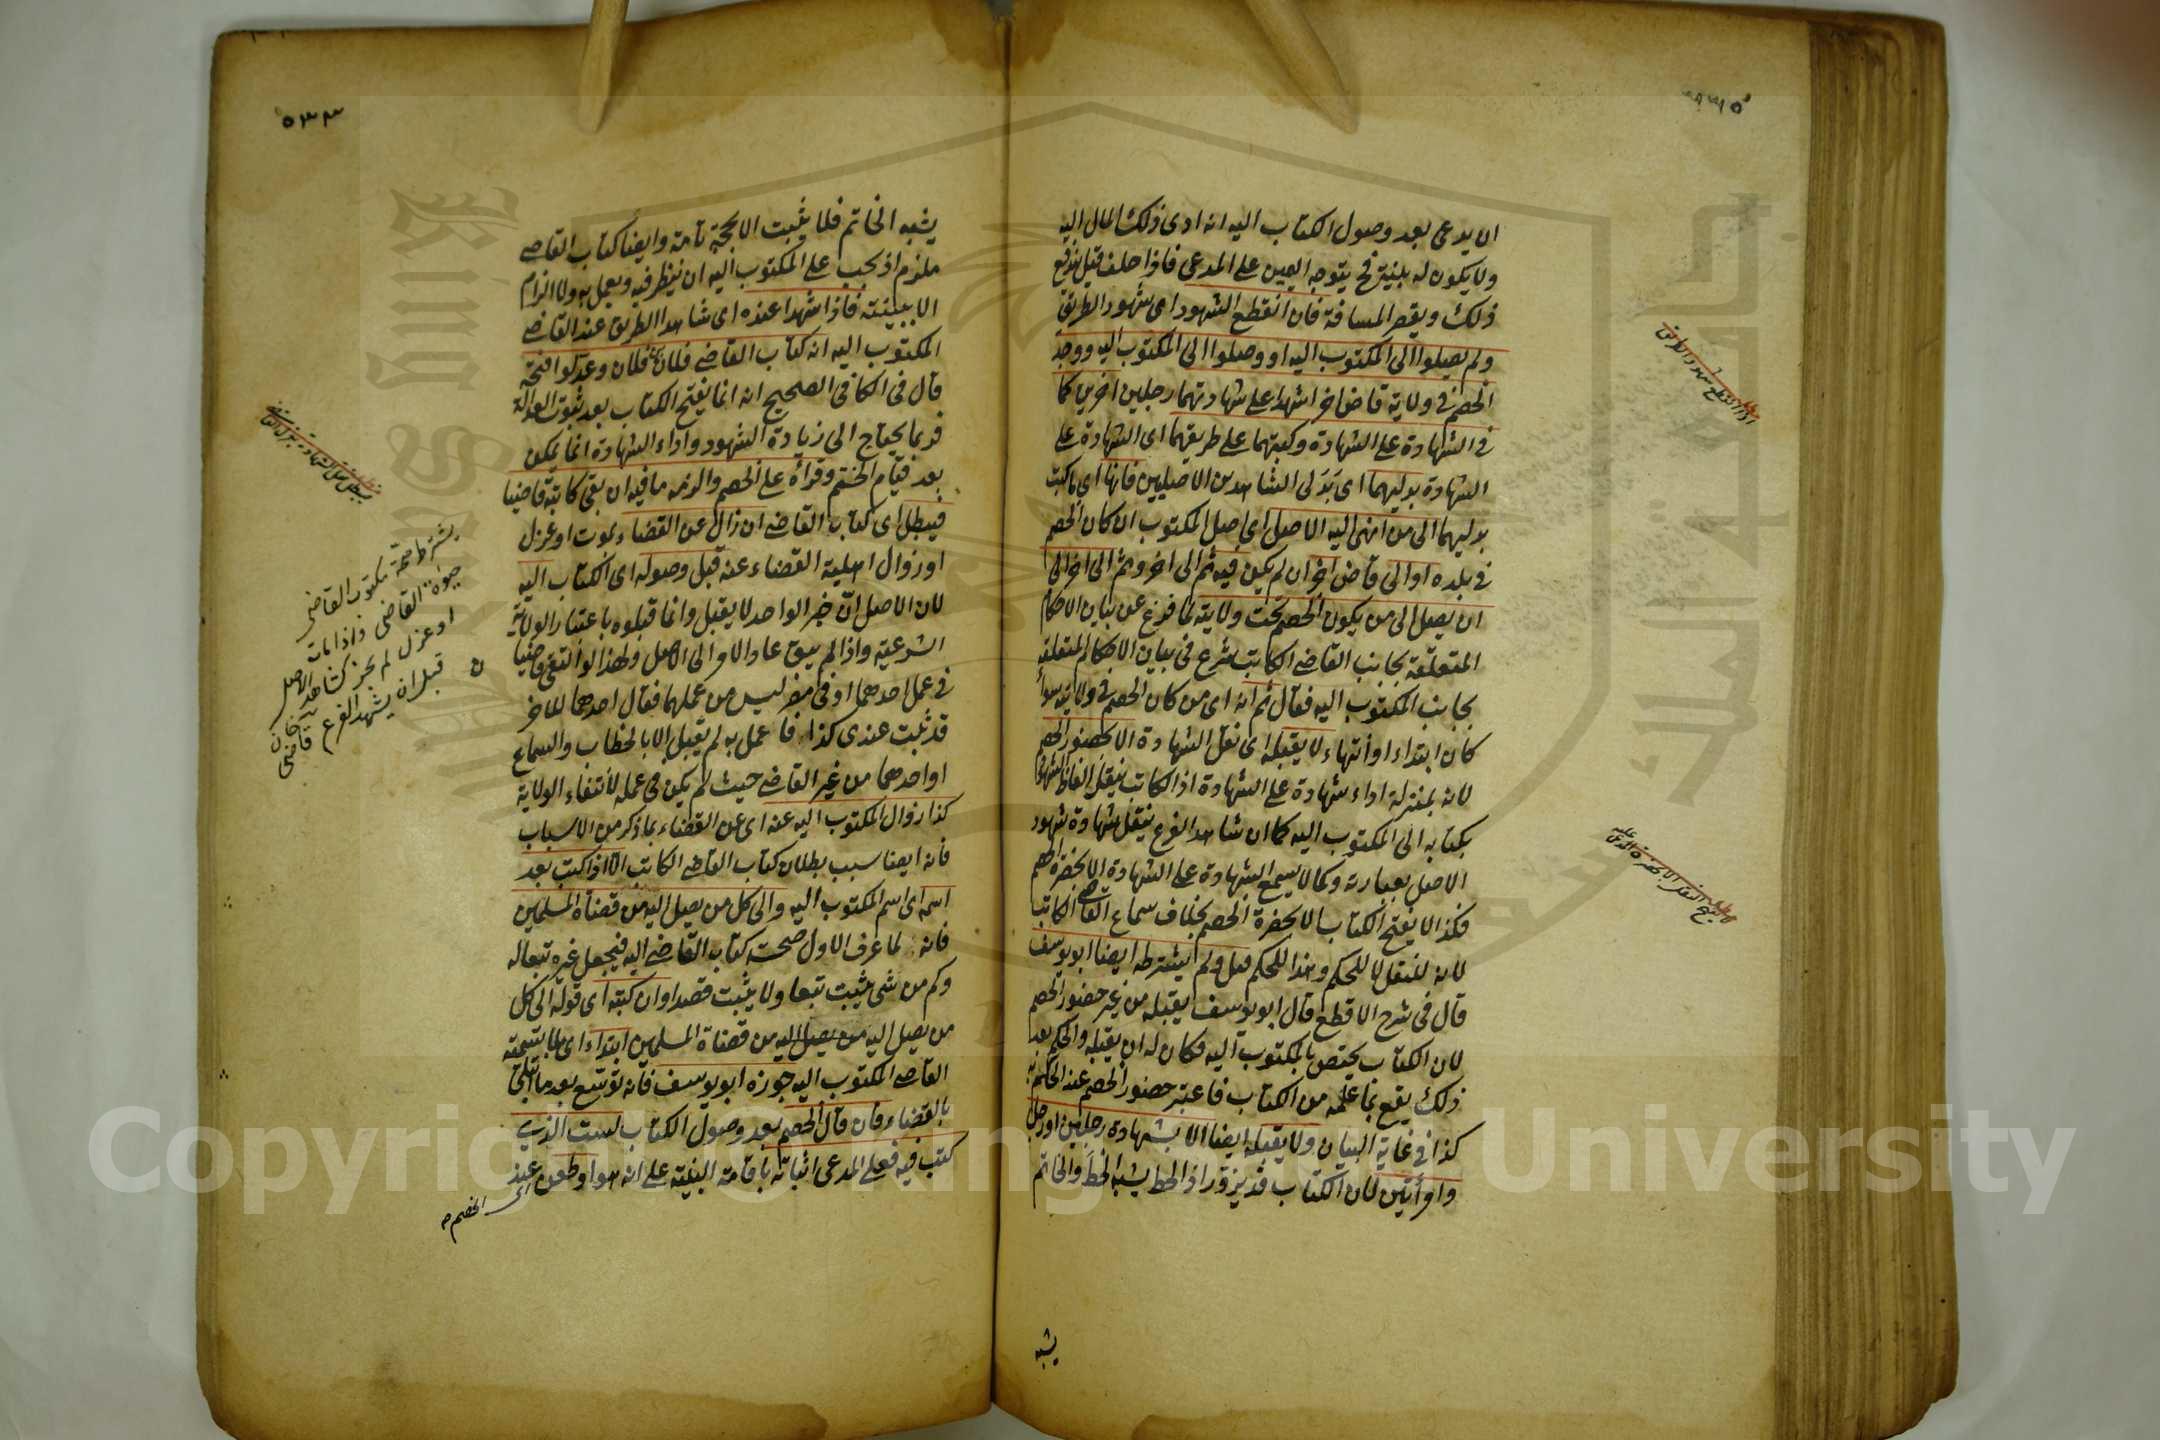 ان يدعى بعد وصول الكتاب اليه انه ادى ذلك المال اليه
ولا يكون له بينة فح يتوجه اليمين على المدعى فاذا حلف قبل يدفع
ذلك ويقصر المسافة فان انقطع الشهود اى شهود الطريق
ولم يصلوا الى المكتوب اليه او وصلوا الى المكتوب اليه ووجد
الخصم فى ولاية قاض اخر اشهدا على شهادتهما رجلين اخرين كما
فى الشهادة على الشهادة وكتبهما على طريقهما اى الشهادة على
الشهادة بدليهما اى بدلى الشاهدين الاصليين فانها اى ما كتب
بدليهما الى من انهى اليه الاصل اى اصل المكتوب ان كان الخصم
فى بلده او الى قاض اخر ان لم يكن فيه ثم الى اخر وثم الى اخر الى
ان يصل الى من يكون الخصم تحت ولايته لما فرغ عن بيان الاحكام
المتعلقة بجانب القاضى الكاتب شرع فى بيان الاحكام المتعلقة
بجانب المكتوب اليه فقال ثم انه اى من كان الخصم فى ولايته سواء
كان ابتداء او انتهاء لا يقبله اى نقل الشهادة الا بحضور الخصم
لانه بمنزلة اداء شهادة على الشهادة اذ الكاتب ينقل الفاظ الشهود
بكتابه الى المكتوب اليه كما ان شاهد الفرع ينقل شهادة شهود
الاصل بعبارته وكما لا يسمع الشهادة على الشهادة الا بحضرة الخصم
فكذا لا يفتح الكتاب الا بحضرة الخصم بخلاف سماع القاضى الكاتب
لانه للنقل لا للحكم وهذا للحكم قبل ولم يشترطه ايضا ابو يوسف
قال فى شرح الاقطع قال ابو يوسف يقبله من غير حضور الخصم
لان الكتاب يختص بالمكتوب اليه فكان له ان يقبله والحكم بعد
ذلك يقع بما علمه من الكتاب فاعتبر حضور الخصم عند الحكم به
كذا فى غاية البيان ولا يقبله ايضا الا بشهادة رجلين او رجل
وامرأتين لان الكتاب قد يزور اذ الخط يشبه الخط والخاتم
يشبه
اذا انقطع شهود الطريق
لا يفتح النقل الا بحضرة المدعى عليه
٥٣٣
يشبه الخاتم فلا يثبت الا بحجة تامة وايضا كتاب القاضى
ملزم اذ يجب على المكتوب اليه ان ينظر فيه ويعمل به ولا الزام
الا ببينته فاذا شهدا عنده اى شاهدا الطريق عند القاضى
المكتوب اليه انه كتاب القاضى فلان بن فلان وعدلوا فتحه
قال فى الكافى الصحيح انه انما يفتح الكتاب بعد ثبوت العدالة
فربما يحتاج الى زيادة الشهود واداء الشهادة انما يمكن
بعد قيام الختم وقرأه على الخصم والزمه ما فيه ان بقى كاتبه قاضيا
فيبطل اى كتاب القاضى ان زال عن القضاء بموت او عزل
او زوال اهلية القضاء عنه قبل وصوله اى الكتاب اليه
لان الاصل ان خبر الواحد لا يقبل وانما قبلوه باعتبار الولاية
الشرعية واذا لم يبق عاد الامر الى الاصل ولهذا لو التقى قاضيا
فى عمل احدهما او فى مصر ليس من عملهما فقال احدهما للاخر
قد ثبت عندى كذا فاعمل به لم يقبل الا بالخطاب والسماع
او احدهما من غير القاضى حيث لم يكن فى عمله لانتفاء الولاية
كذا زوال المكتوب اليه عنه اى عن القضاء بما ذكر من الاسباب
فانه ايضا سبب بطلان كتاب القاضى الكاتب الا اذا كتب بعد
اسمه اى اسم المكتوب اليه والى كل من يصل اليه من قضاة المسلمين
فانه لما عرف الاول صحت كتاب القاضى اليه فيجعل غيره تبعا له
وكم من شىء يثبت تبعا ولا يثبت قصدا وان كتبه اى قوله الى كل
من يصل اليه من يصل اليه من قضاة المسلمين ابتداء اى بلا تسمية
القاضى المكتوب اليه جوزه ابو يوسف فانه توسع بعد ما ابتلى
بالقضاء فان قال الخصم بعد وصول الكتاب لست الذى
كتب فيه فعلى المدعى اثباته باقامة البينة على انه هو او طعن عند
اى الخصم
يشترط صحة مكتوب القاضى
حيوة القاضى واذا مات
او عزل لم يجز كشاهد الاصل
قبل ان يشهد الفرع قاضى خان